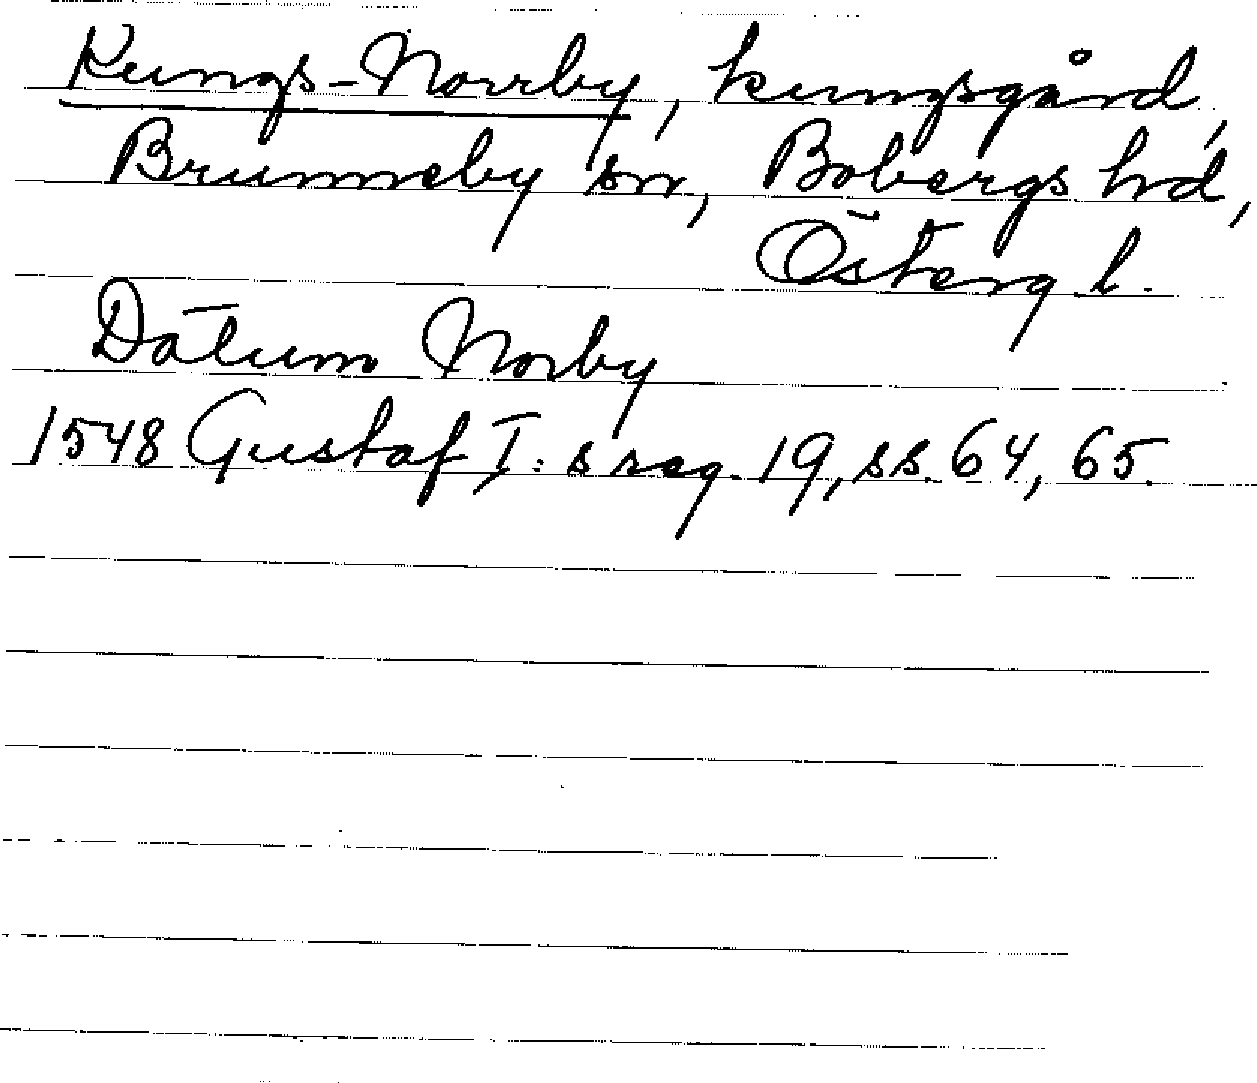 Kungs-Norrby, kungsgård,
Brunneby sn, Bobergs hd,
Österg l.
Datum Norby
1548 Gustaf I:s reg. 19, ss. 64, 65.